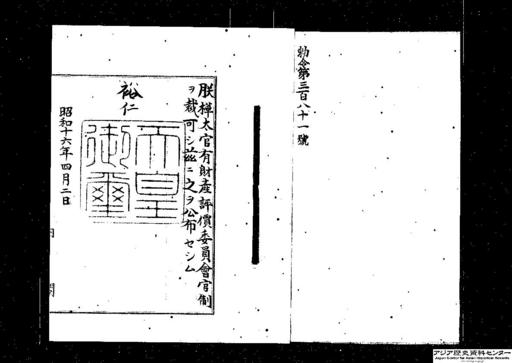 勅令第三百八十一號
朕樺太官有財産評價委員會官制
ヲ裁可シ茲ニ之ヲ公布セシム
裕仁
天皇御璽
昭和十六年四月二日
内閣
アジア歴史資料センター
Japan Center for Asian Historical Records